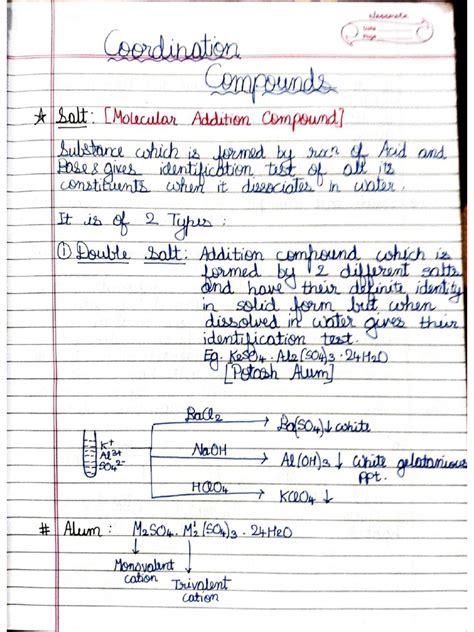 classmate
Date
Page
Coordination
Compounds
★ Salt: [Molecular Addition Compound]
Substance which is formed by rxn of Acid and
Base & gives identification test of all its
constituents when it dissociates in water.
It is of 2 Types:
① Double Salt: Addition compound which is
formed by 2 different salts
and have their definite identity
in solid form but when
dissolved in water gives their
identification test.
Eg. K2SO4. Al2(SO4)3. 24H2O
[Potash Alum]
BaCl2 → Ba(SO4)↓ white
K+
Al3+
SO42-
NaOH → Al(OH)3 ↓ white gelatanious
ppt.
HClO4 → KClO4 ↓
# Alum: M2SO4. M2'(SO4)3. 24H2O
Monovalent
cation
Trivalent
cation